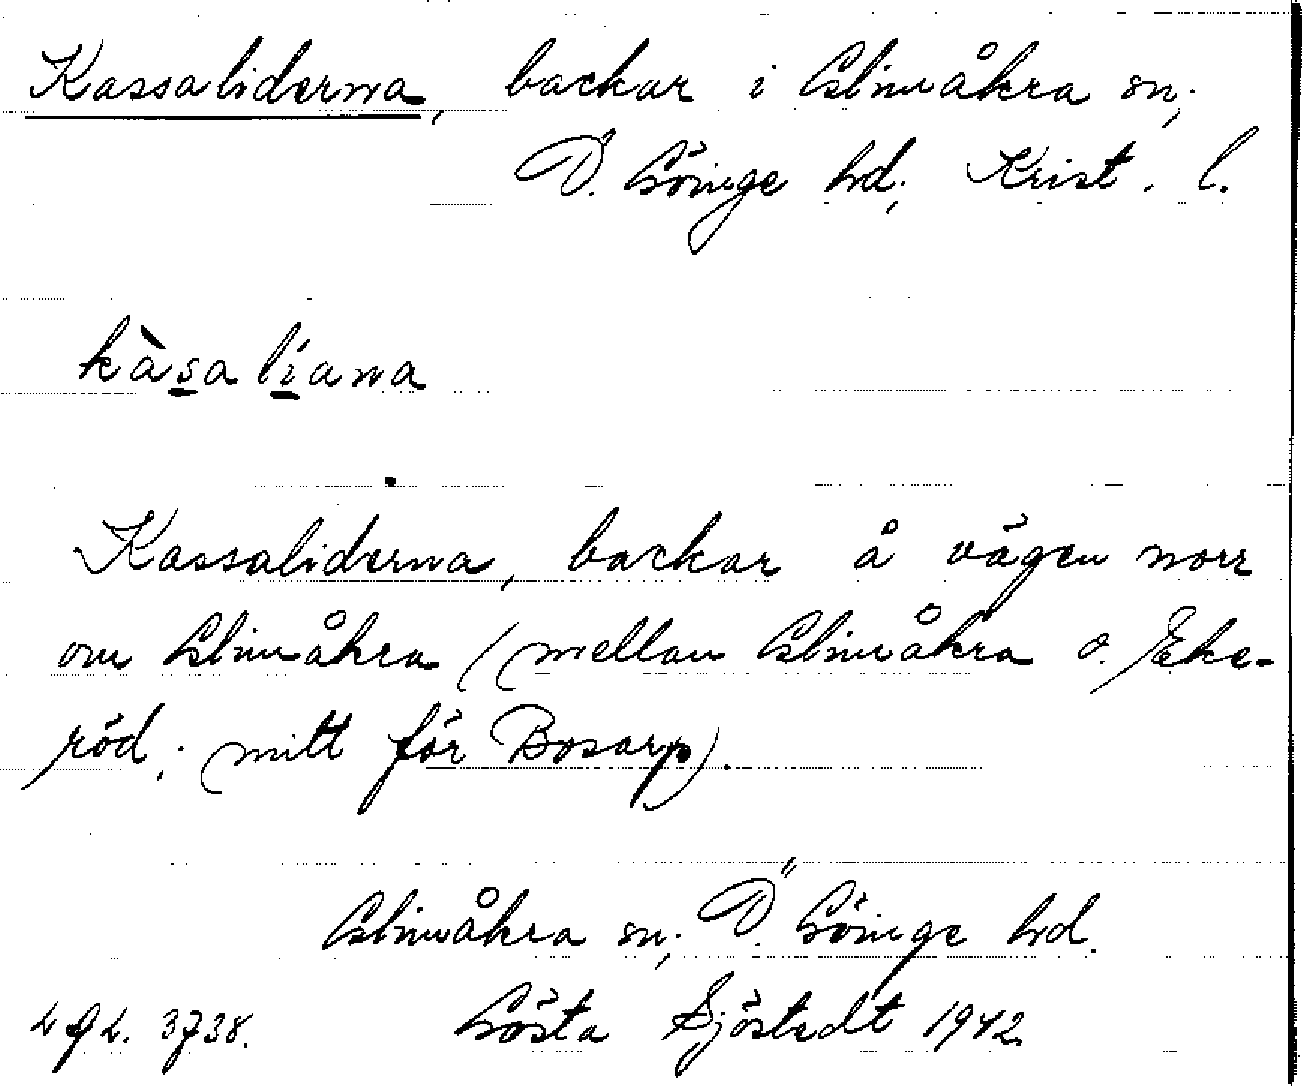 Kassaliderna, backar i Glimåkra sn;
Ö. Göinge hd; Krist. l.
kàsalíana
Kassaliderna, backar å vägen norr
om Glimåkra (mellan Glimåkra o. Eke-
röd; mitt för Bosarp).
Glimåkra sn; Ö. Göinge hd.
3738. Gösta Sjöstedt 1942.